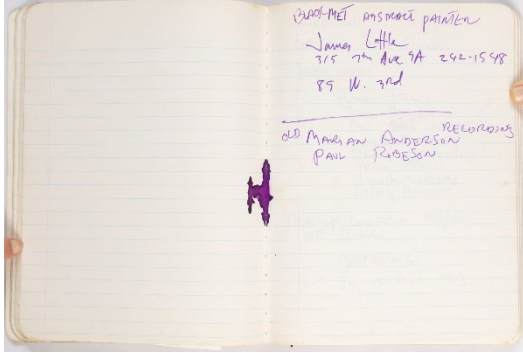 BLACK MET ABSTRACT PAINTER
James Little
315 7th Ave 9A 242-1548
89 W. 3rd
OLD MARIAN ANDERSON RECORDING
PAUL ROBESON